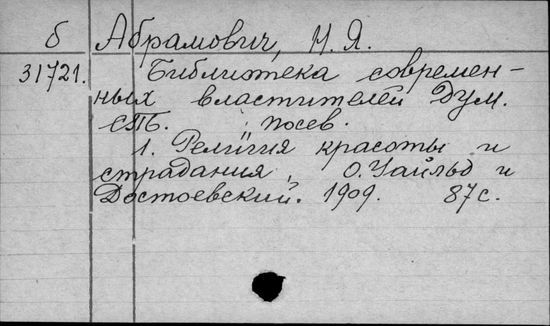 б Абрамович, Н. Я.
31721. Библиотека современ-
ных властителей дум.
СПБ. посев.
1. Религия красоты и
страдания, О. Уайльд и
Достоевский. 1909. 87 с.